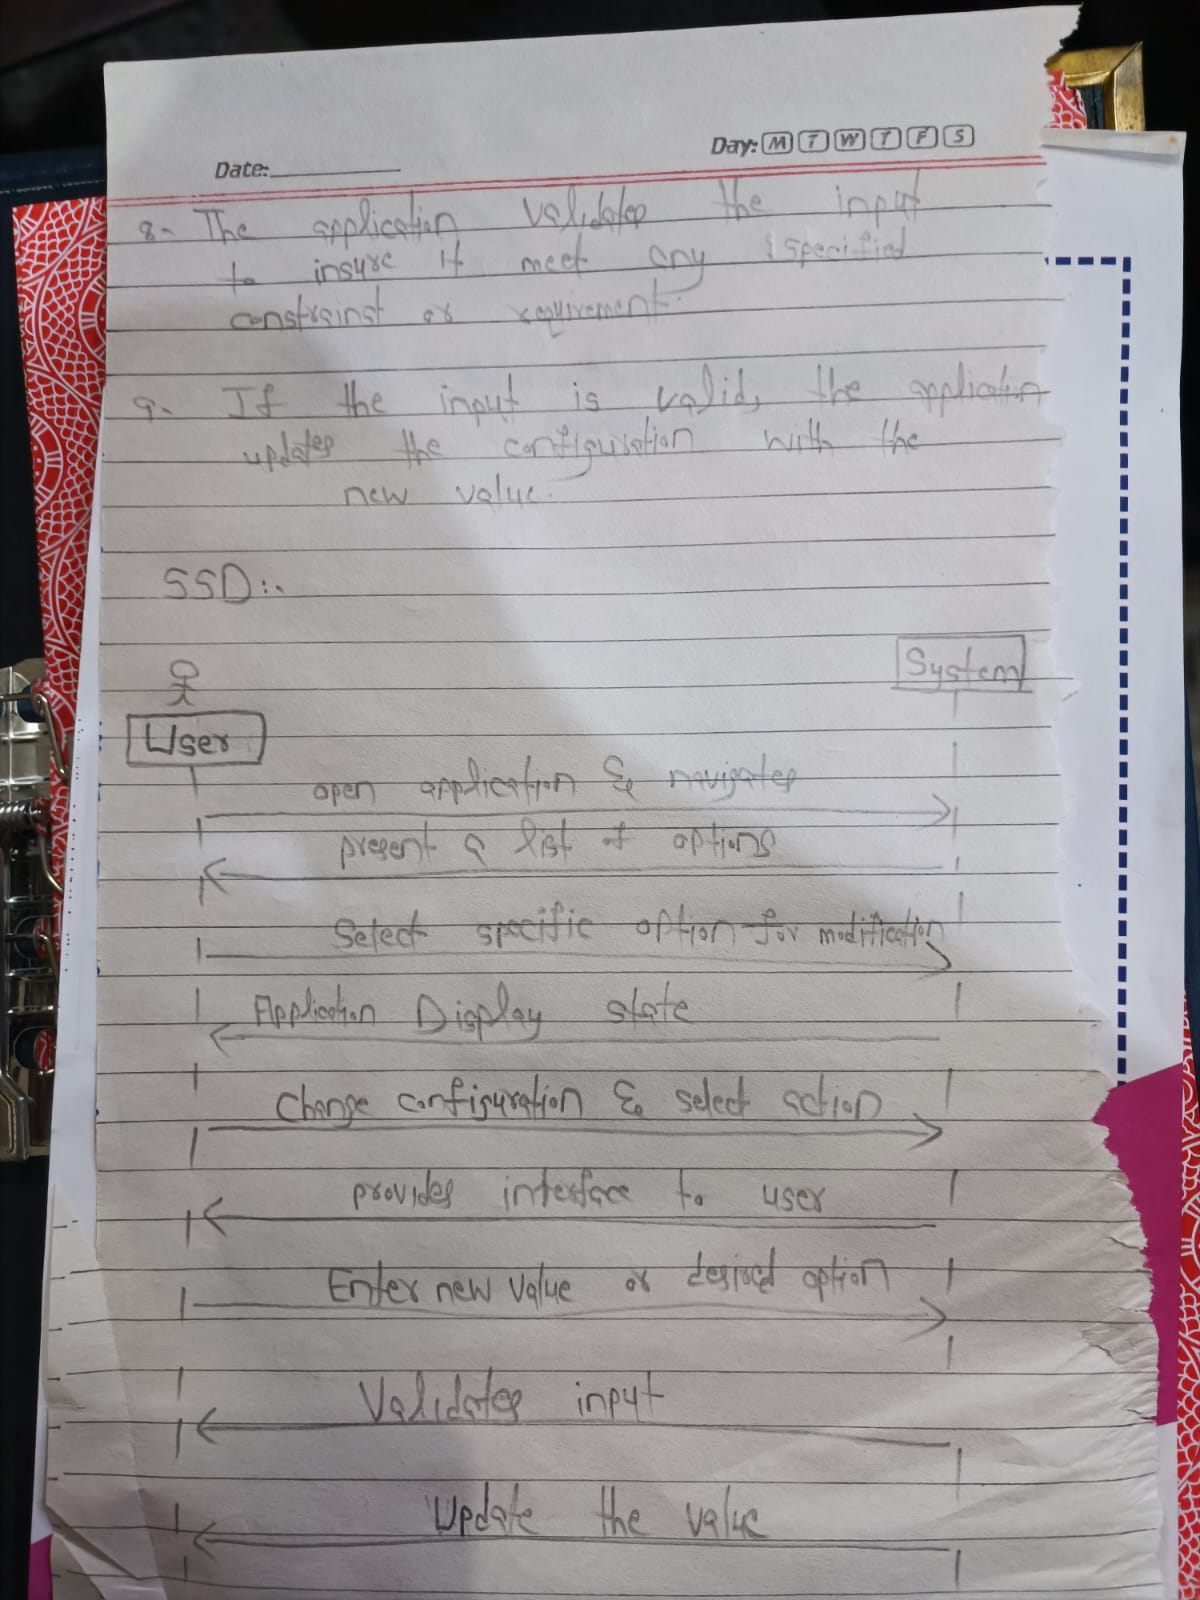 Date:
Day: M T W T F S
8- The application validates the input
to insure it meet any specified
constrainst or requirement.
9- If the input is valid, the application
updates the configuration with the
new value.
SSD:-
System
User
open application & navigates
present a list of options
Select specific option for modification
Application Display state
Change configuration & select action
provides interface to user
Enter new value or desired option
Validates input
Update the value